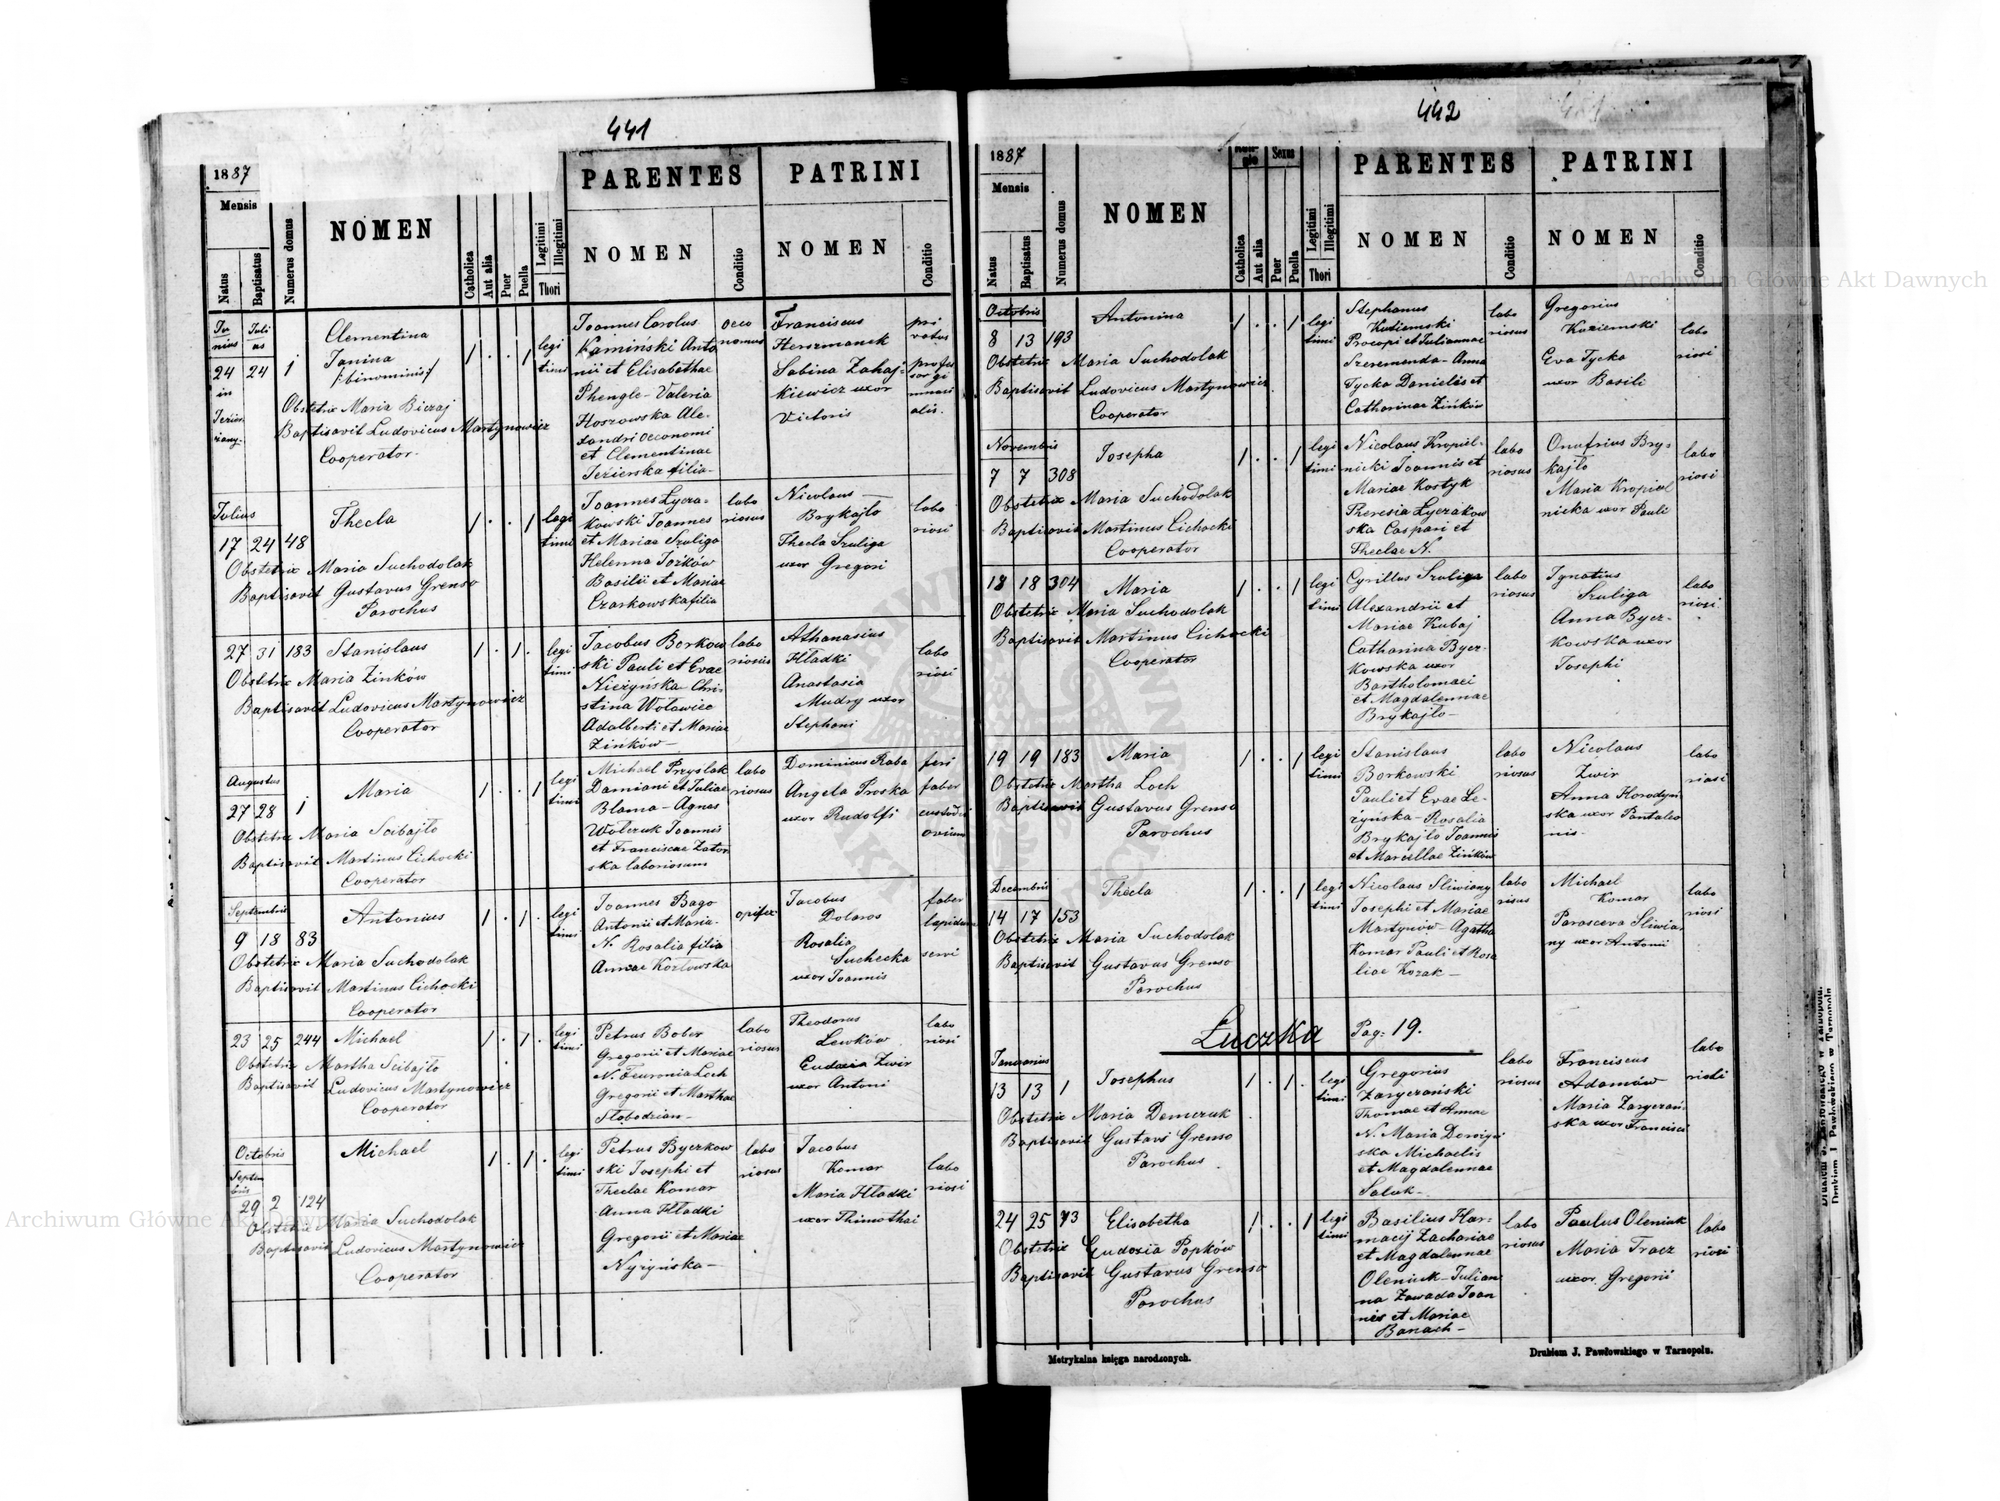 441
1887
Mensis
Natus
Baptisatus
Numerus domus
NOMEN
Catholica
Aut alia
Puer
Puella
Legitimi
Illegitimi
Thori
PARENTES
NOMEN
Conditio
PATRINI
NOMEN
Conditio
Junius
Julius
24
24
1
in
Clementina
Janina
/:binominis:/
Obstetrix Maria Biczaj
Baptisavit Ludovicus Martynowicz
Cooperator
1 . . 1
legi
timi
Joannes Carolus
Kamiński Anto
nii et Elisabethae
Phengle - Valeria
Hoszowska Ale-
xandri oeconomi
et Clementinae
Jezierska filia
oeco
nomus
Franciscus
Herszmanek
Sabina Zahaj-
kiewicz uxor
Victoris
pri
vatus
profes
sor gi
mnasi
alis.
Julius
17 24 48
Thecla
Obstetrix Maria Suchodolak
Baptisavit Gustavus Grenso
Parochus
1 . . 1
legi
timi
Joannes Lycza-
kowski Joannes
et Mariae Szuliga
Helenna Jożków
Basilii et Mariae
Czarkowska filia
labo
riosus
Nicolaus
Brykajło
Thecla Szuliga
uxor Gregori
labo
riosi
27 31 183
Stanislaus
Obstetrix Maria Zińków
Baptisavit Ludovicus Martynowicz
Cooperator
1 . 1 .
legi
timi
Jacobus Borkow
ski Pauli et Evae
Nieżyńska - Chri
stina Wołowiec
Adalberti et Mariae
Zińków -
labo
riosus
Athanasius
Hładki
Anastasia
Mudry uxor
Stephani
labo
riosi
Augustus
27 28 1
Maria
Obstetrix Maria Scibajło
Baptisavit Martinus Cichocki
Cooperator
1 . . 1
legi
timi
Michael Przyslak
Damiani et Juliae
Blama - Agnas
Wolczuk Joannis
et Franciscae Zator
ska laboriosum
labo
riosus
Dominicus Raba
Angela Proska
uxor Rudolfi
feri
faber
custodis
ovium
Septembris
9 18 83
Antonius
Obstetrix Maria Suchodolak
Baptisavit Martinus Cichocki
Cooperator
1 . 1 .
legi
timi
Joannes Bago
Antonii et Maria
N. Rosalia filia
Annae Kozłowska
opifex
Jacobus
Dolaros
Rosalia
Suchecka
uxor Joannis
faber
lapidum
servi
23 25 244
Michael
Obstetrix Martha Scibajło
Baptisavit Ludovicus Martynowicz
Cooperator
1 . 1 .
legi
timi
Petrus Bober
Gregorii et Mariae
N. Feurmia Loch
Gregorii et Marthae
Słobodzian -
labo
riosus
Theodorus
Lewków
Eudoxia Zwir
uxor Antoni
labo
riosi
Octobris
Septembris
29 2 124
Michael
Obstetrix Maria Suchodolak
Baptisavit Ludovicus Martynowicz
Cooperator
1 . 1 .
legi
timi
Petrus Byczkow
ski Josephi et
Theclae Komar
Anna Hładki
Gregorii et Mariae
Nyżyńska -
labo
riosus
Jacobus
Komar
Maria Hładki
uxor Thimothai
labo
riosi
442
1887
Mensis
Natus
Baptisatus
Numerus domus
NOMEN
Catholica
Aut alia
Sexus
Puer
Puella
Legitimi
Illegitimi
Thori
PARENTES
NOMEN
Conditio
PATRINI
NOMEN
Conditio
Octobris
8 13 193
Antonina
Obstetrix Maria Suchodolak
Baptisavit Ludovicus Martynowicz
Cooperator
1 . . 1
legi
timi
Stephanus
Kuziemski
Procopi et Juliannae
Szeremenda - Anna
Tycka Danielis et
Catharinae Zińków
labo
riosus
Gregorius
Kuziemski
Eva Tycka
uxor Basili
labo
riosi
Novembris
7 7 308
Josepha
Obstetrix Maria Suchodolak
Baptisavit Martinus Cichocki
Cooperator
1 . . 1
legi
timi
Nicolaus Kropiel-
nicki Joannis et
Mariae Kostyk
Theresia Lyczakow
ska Caspari et
Theclae N.
labo
riosus
Onufrius Bry-
kajło
Maria Kropiel
nicka uxor Pauli
labo
riosi
18 18 304
Maria
Obstetrix Maria Suchodolak
Baptisavit Martinus Cichocki
Cooperator
1 . . 1
legi
timi
Cyrillus Szuliga
Alexandrii et
Mariae Kubaj
Catharina Bycz-
kowska uxor
Bartholomaei
et Magdalennae
Brykajło -
labo
riosus
Ignatius
Szuliga
Anna Bycz-
kowska uxor
Josephi
labo
riosi
19 19 183
Maria
Obstetrix Martha Loch
Baptisavit Gustavus Grenso
Parochus
1 . . 1
legi
timi
Stanislaus
Borkowski
Pauli et Evae Le-
żyńska - Rosalia
Brykajło Joannis
et Marcellae Zińków
labo
riosus
Nicolaus
Zwir
Anna Horodyń
ska uxor Pantaleo
nis -
labo
riosi
Decembris
14 17 153
Thecla
Obstetrix Maria Suchodolak
Baptisavit Gustavus Grenso
Parochus
1 . . 1
legi
timi
Nicolaus Sliwiany
Josephi et Mariae
Martynow - Agatha
Komar Pauli et Rosa
liae Kozak -
labo
riosus
Michael
Komar
Parasceva Sliwia
ny uxor Antonii
labo
riosi
Łuczka Pag: 19.
Januarius
13 13 1
Josephus
Obstetrix Maria Demczuk
Baptisavit Gustavi Grenso
Parochus
1 . 1 .
legi
timi
Gregorius
Zaryczański
Thomae et Annae
N. Maria
ska Michaelis
et Magdalennae
labo
riosus
Franciscus
Adamów
Maria Zaryczań
ska uxor Francisci
labo
riosi
24 25 73
Elisabetha
Obstetrix Eudoxia Popków
Baptisavit Gustavus Grenso
Parochus
1 . . 1
legi
timi
Basilius Har-
macij Zachariae
et Magdalennae
Oleniuk - Julian
na Zawada Joan
nis et Mariae
Banach -
labo
riosus
Paulus Oleniuk
Maria Tracz
uxor Gregorii
labo
riosi
Metrykalna księga narodzonych.
Drukiem J. Pawłowskiego w Tarnopolu.
Drukiem J. Pawłowskiego w Tarnopolu.
Archiwum Główne Akt Dawnych
Archiwum Główne Akt Dawnych